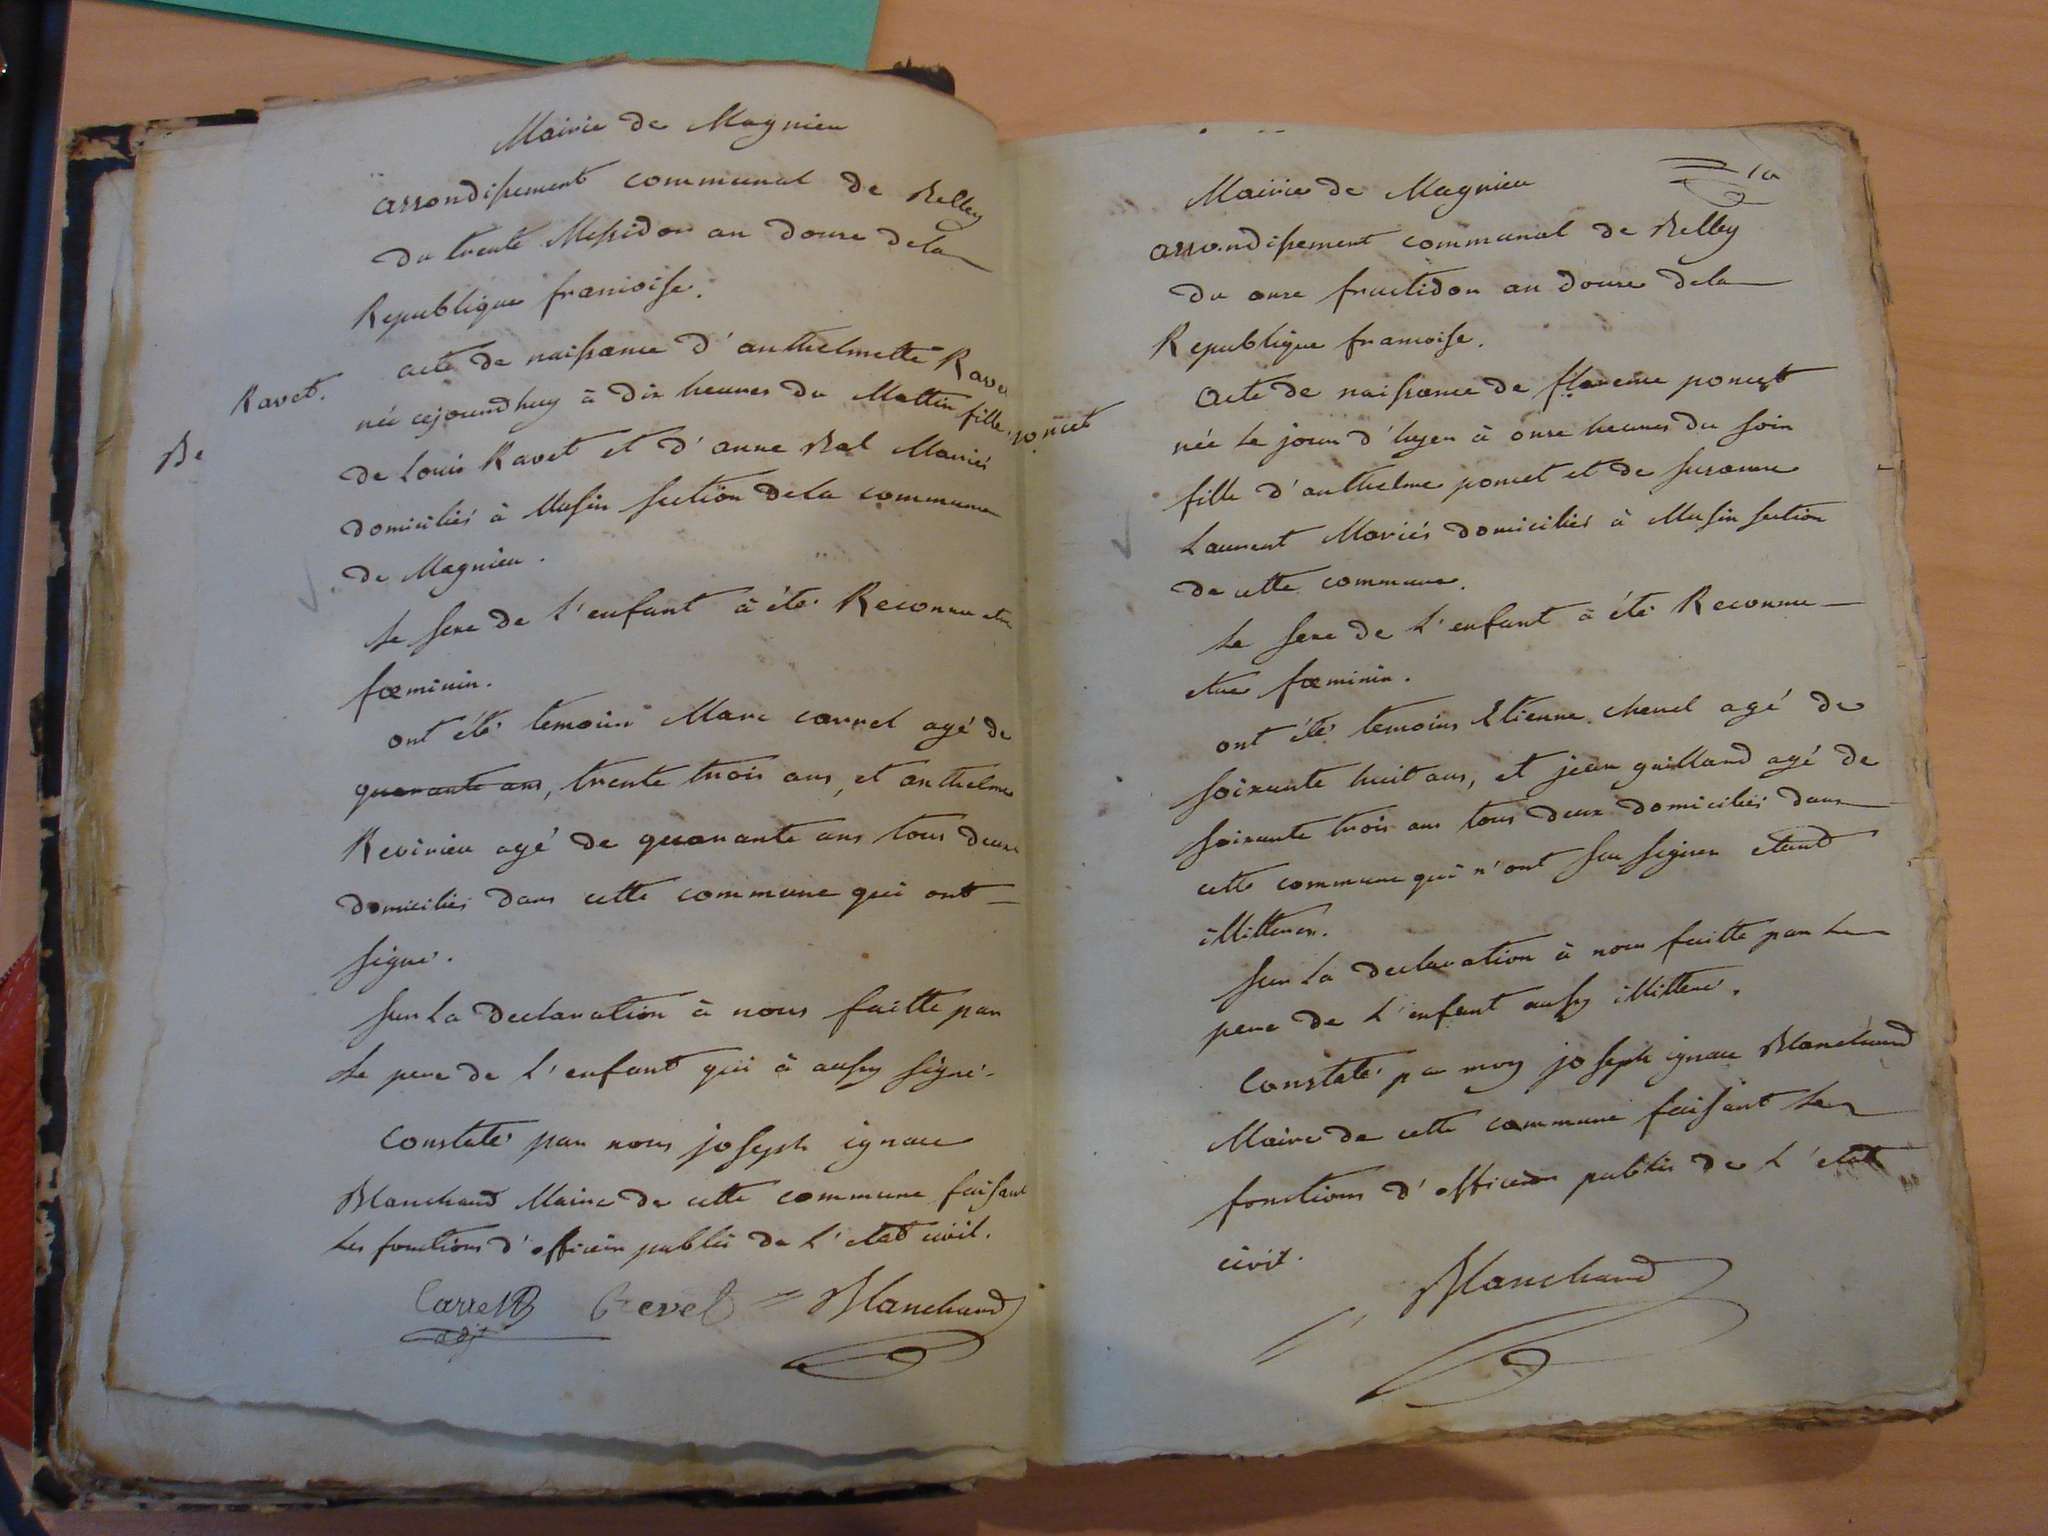 Mairie de Magnieu
arrondissement communal de Belley
du trente Messidor an douze dela
Republique francoise.
Ravet.
acte de naissance d'anthelmette Rave
née cejourdhuy à dix heures du Mattin fille
de Louis Ravet et d'anne Bal Mariés
domiciliés à Musin section dela commune
de Magnieu.
Le sexe de l'enfant à été Reconnu etre
fœminin.
ont été temoins Marc carrel agé de
quarante ans, trente trois ans, et anthelme
Revirieu agé de quarante ans tous deux
domiciliés dans cette commune qui ont
signé.
sur La declaration à nous faitte par
Le pere de L'enfant qui à aussy signé.
Constaté par nous joseph ignace
Blanchard Maire de cette commune faisant
Les fonctions d'officier public de L'etat civil.
Carrel adjt Revel Blanchard
10
Mairie de Magnieu
arrondissement communal de Belley
du onze fructidor an douze dela
Republique francoise.
poncet
Acte de naissance de florence poncet
née Le jour d'hyer à onze heures du soir
fille d'anthelme poncet et de susanne
Laurent Mariés domiciliés à Musin section
de cette commune.
Le sexe de L'enfant à été Reconnu
etre fœminin.
ont été temoins Etienne chenel agé de
soixante huit ans, et jean guilland agé de
soixante trois ans tous deux domiciliés dans
cette commune qui n'ont su signer etant
illitterés.
sur La declaration à nous faitte par Le
pere de L'enfant aussy illitteré.
Constaté pa moy joseph ignace Blanchard
Maire de cette commune faisant Les
fonctions d'officier public de L'etat
civil.
Blanchard